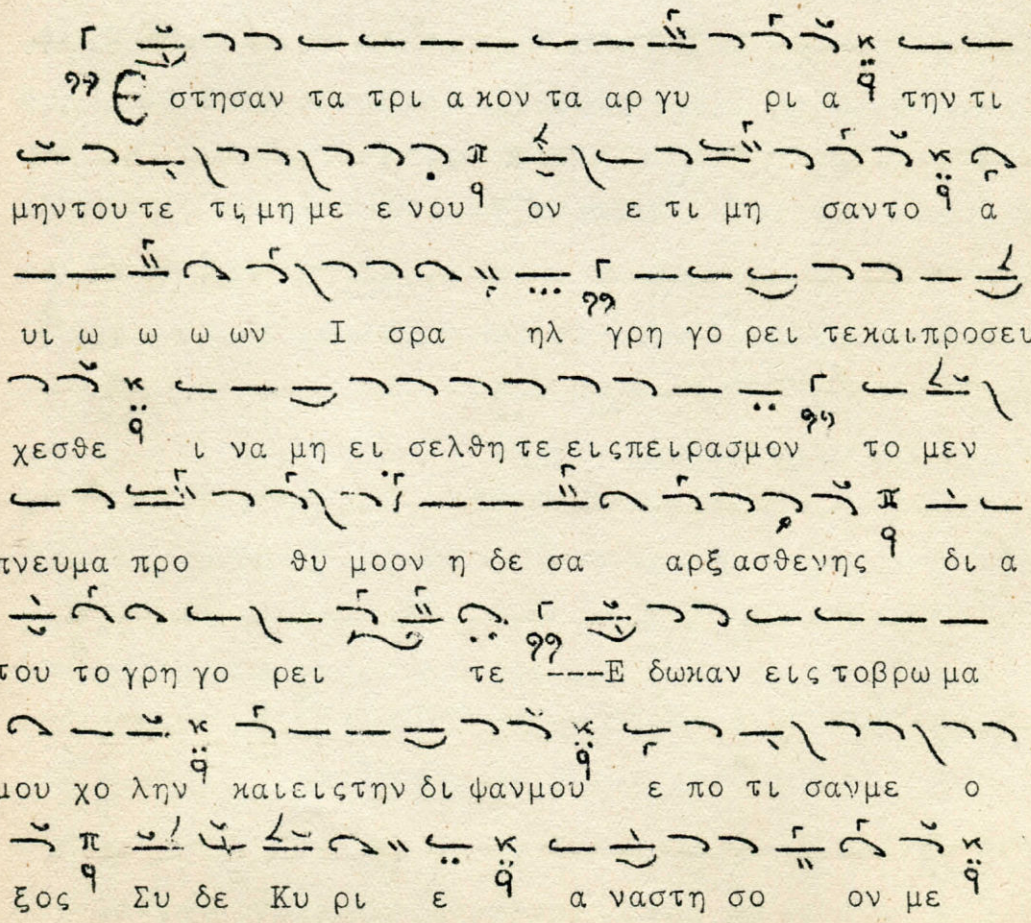 Ε στησαν τα τρι α κον τα αρ γυ ρι α την τι
μηντου τε τις μη με ε νου ον ε τι μη σαντο α
υι ω ω ω ων Ι σρα ηλ γρη γο ρει τεκαιπροσευ
χεσθε ι να μη ει σελθη τε ειςπειρασμον το μεν
πνευμα προ θυ μοον η δε σα αρξ ασθενης δι α
του το γρη γο ρει τε ---Ε δωκαν εις τοβρω μα
μου χο λην και ειςτην δι ψανμου ε πο τι σανμε ο
ξος Συ δε Κυ ρι ε α ναστη σο ον με